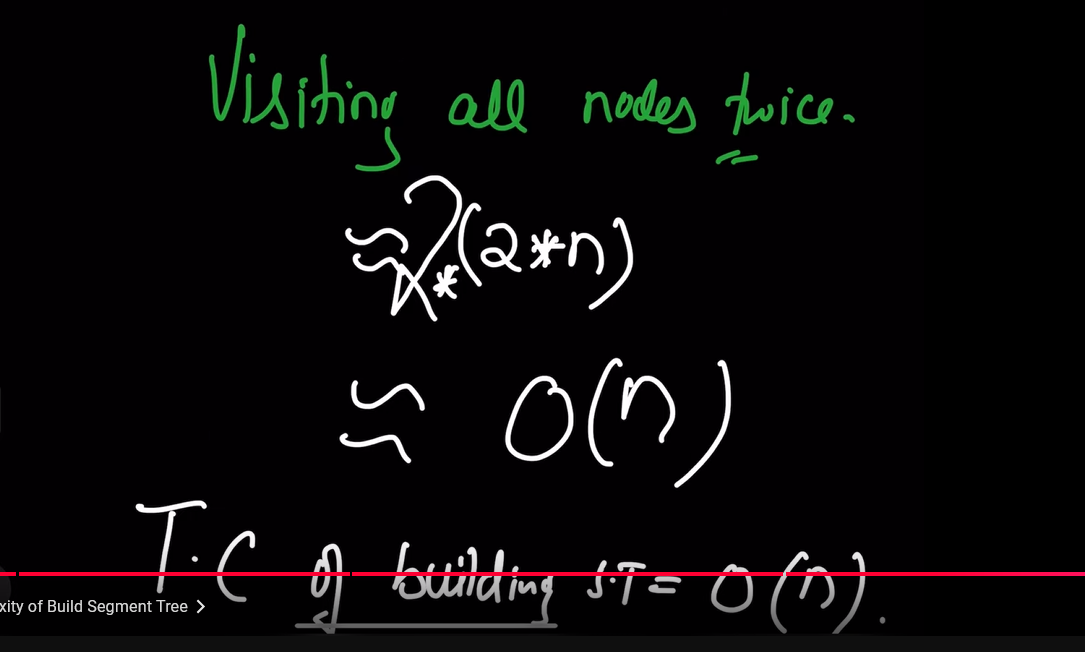 Visiting all nodes twice.
≈ 2*(2*n)
≈ O(n)
T.C of building S.T = O(n).
xity of Build Segment Tree >